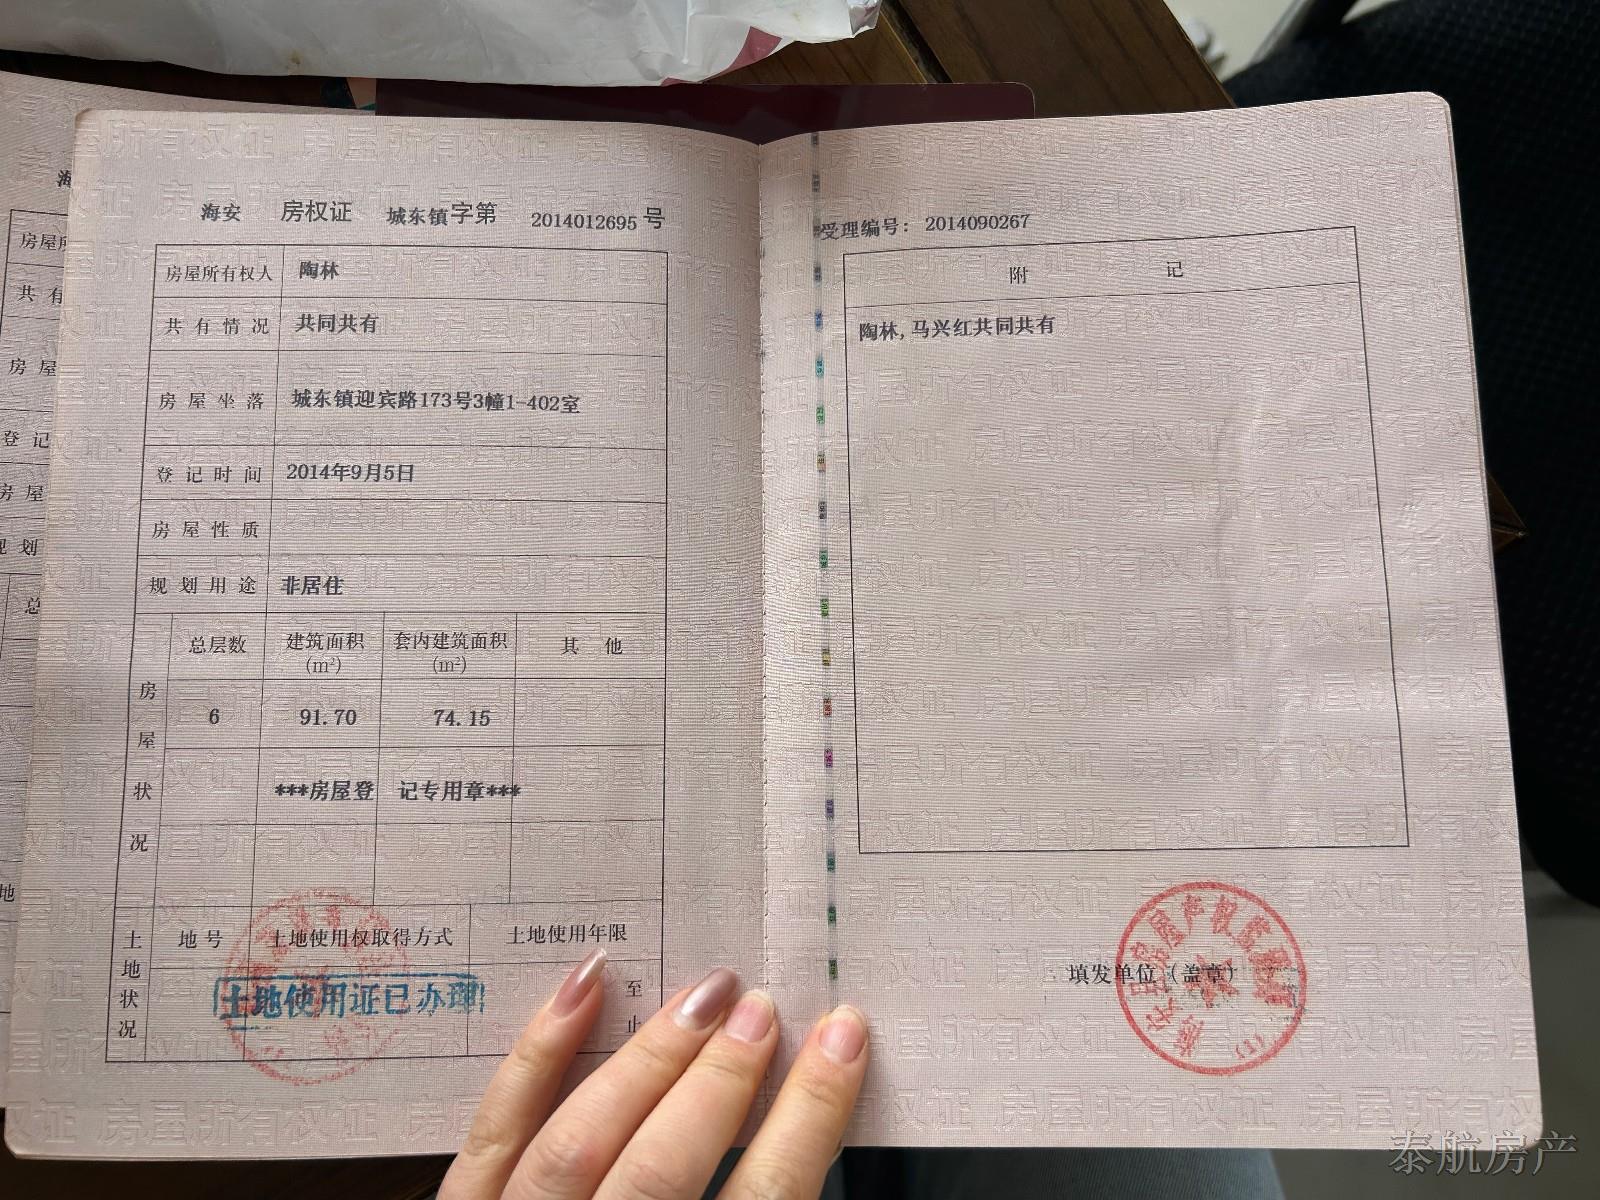 海安 房权证 城东镇字第 2014012695 号
房屋所有权人 陶林
共有情况 共同共有
房屋坐落 城东镇迎宾路173号3幢1-402室
登记时间 2014年9月5日
房屋性质
规划用途 非居住
房屋状况
总层数 建筑面积(m²) 套内建筑面积(m²) 其他
6 91.70 74.15
***房屋登 记专用章***
土地状况
地号 土地使用权取得方式 土地使用年限
土地使用证已办理
至
止
受理编号: 2014090267
附 记
陶林,马兴红共同共有
填发单位(盖章)
泰航房产
海
房屋所
共有
房屋
登记
房屋
规划
总
地